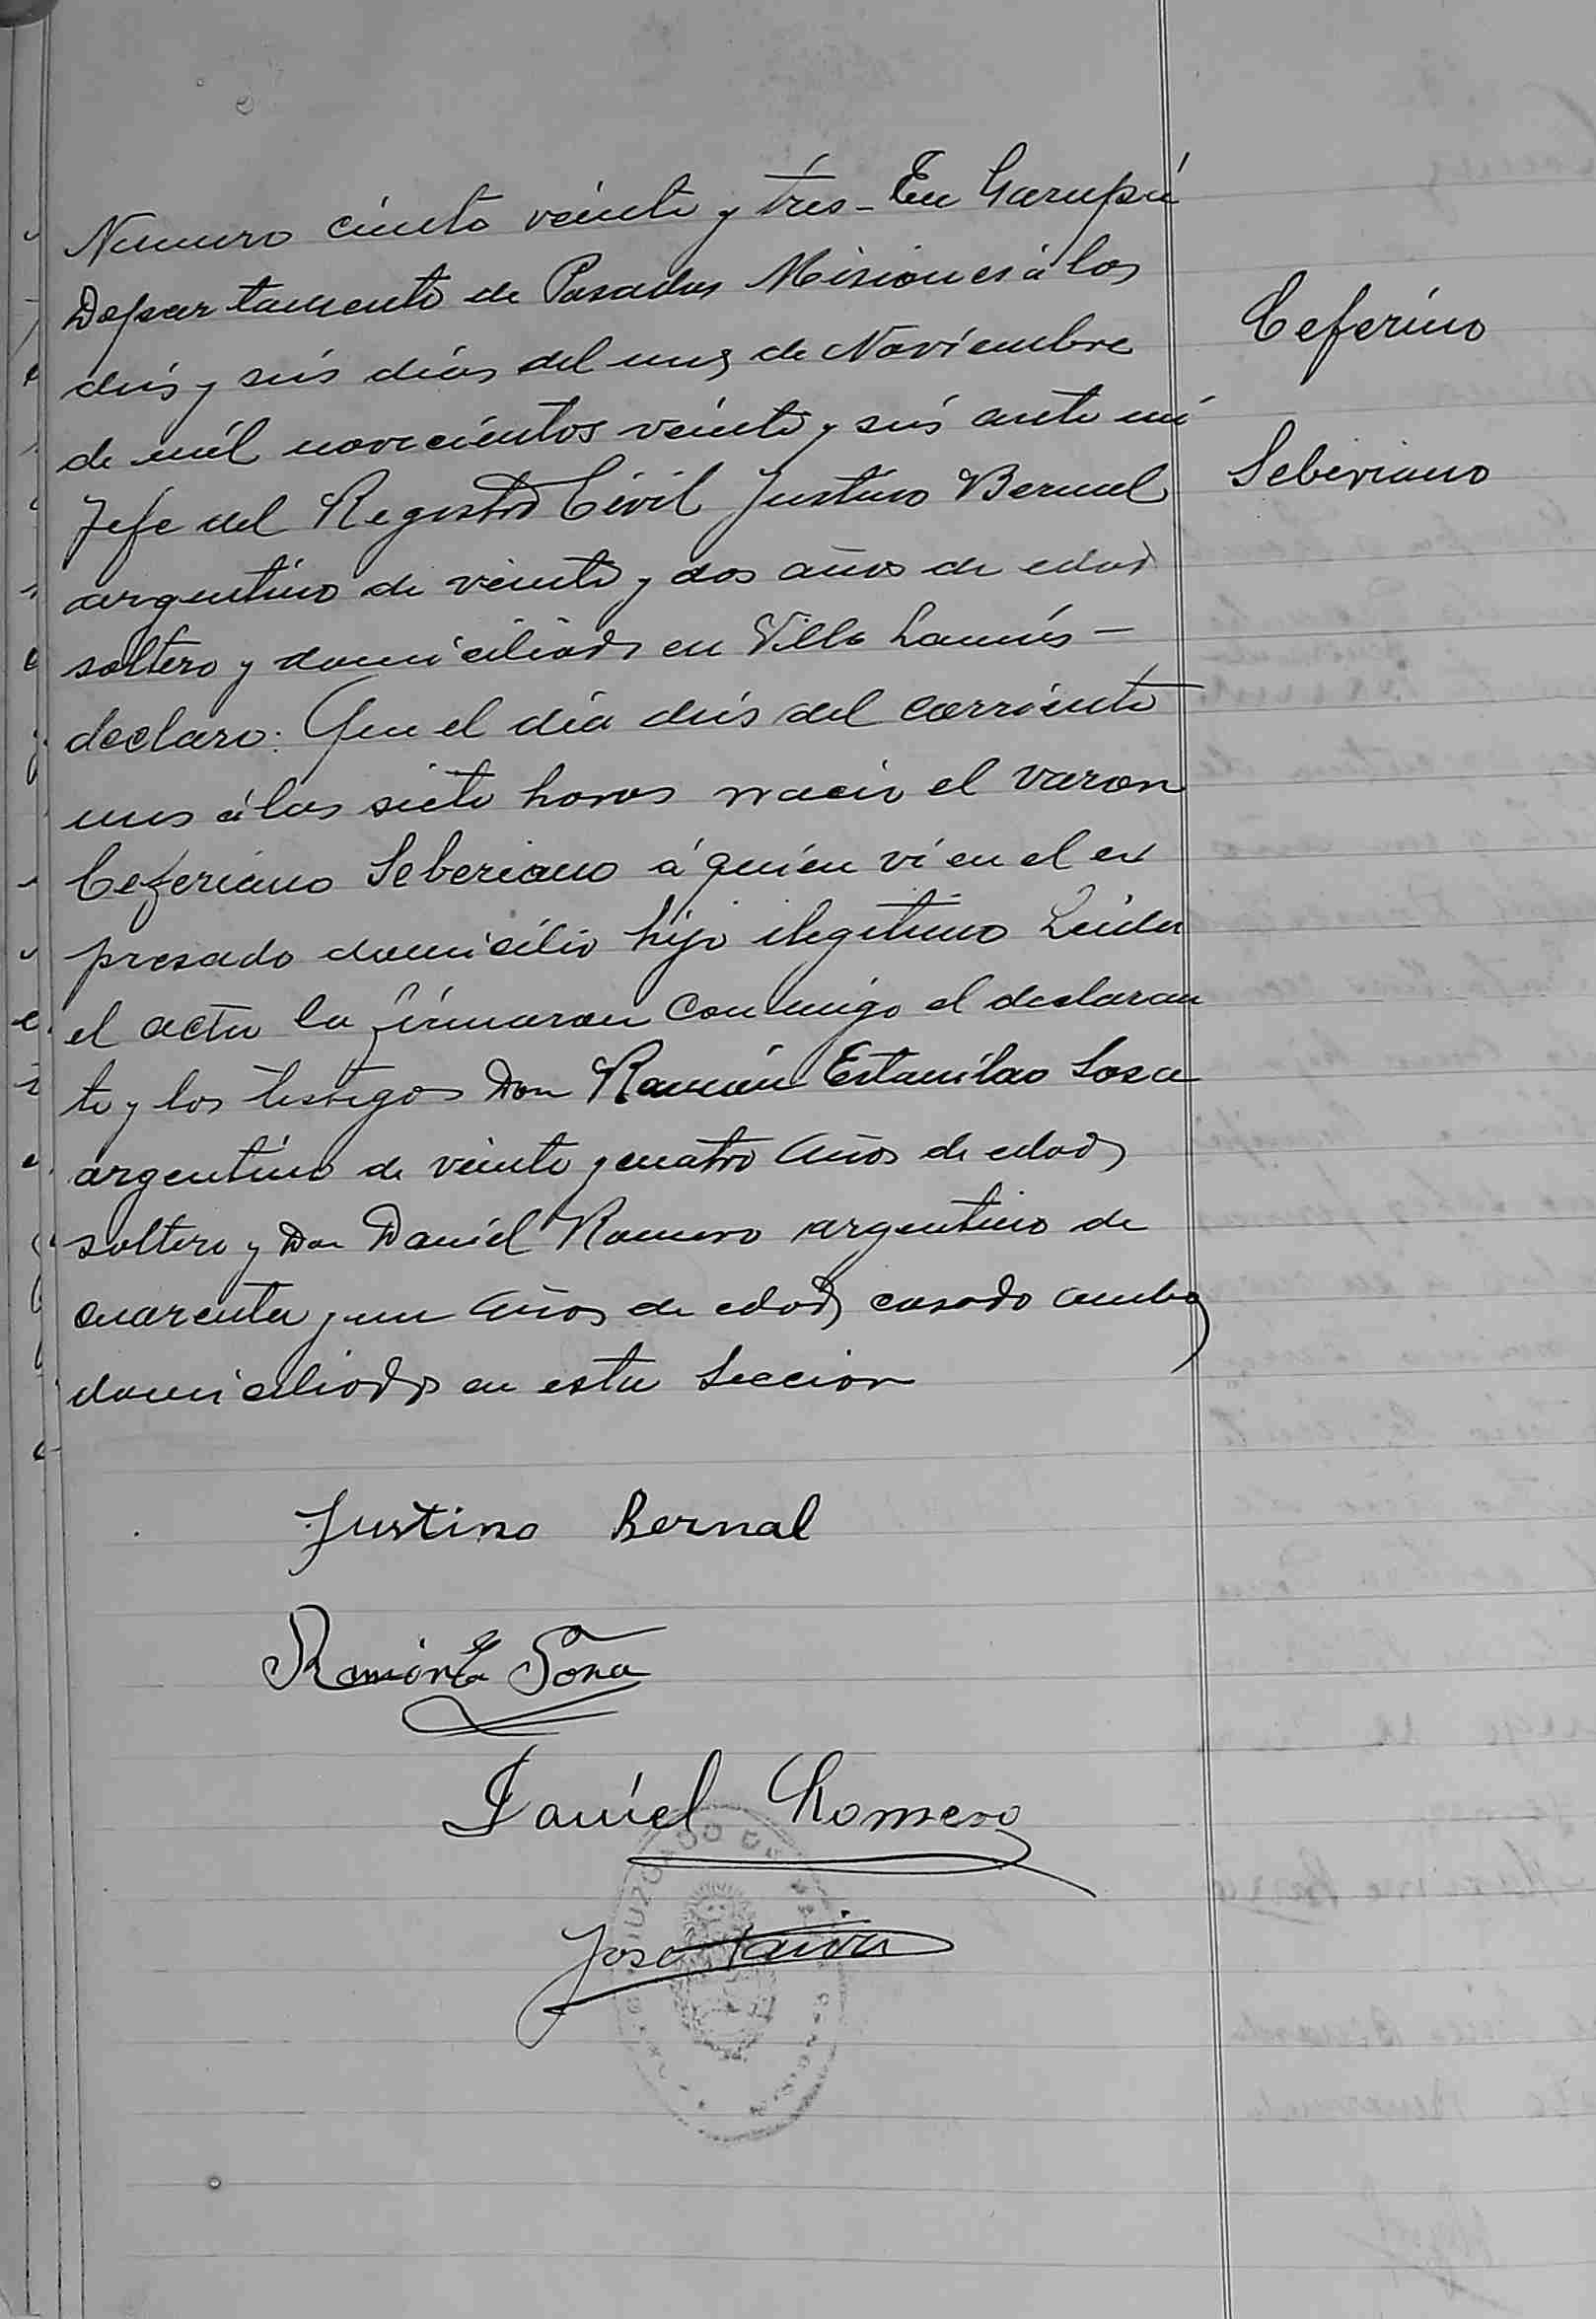 Numero ciento veinte y tres - En Garupá
Departamento de Posadas Misiones á los
diis y seis dias del mes de Noviembre
de mil novecientos veinte y seis ante mi
Jefe del Registro Civil Justino Bernal
argentino de veinte y dos años de edad
soltero y domiciliado en Villa Lanús -
declaro: Que el dia diis del corriente
mes á las siete horas nacio el varon
Ceferiano Seberiano á quien vi en el ex
presado domicilio hijo ilegitimo Leida
el acta la firmaron conmigo el declaran
te y los testigos Don Ramón Estanilao Sosa
argentino de veinte y cuatro años de edad
soltero y Don Daniel Romero argentino de
cuarenta y un años de edad casado ambos
domiciliados en esta Seccion
Ceferino
Sebiriano
Justino Bernal
Ramón E Sosa
Daniel Romero
José
JUZGADO DE